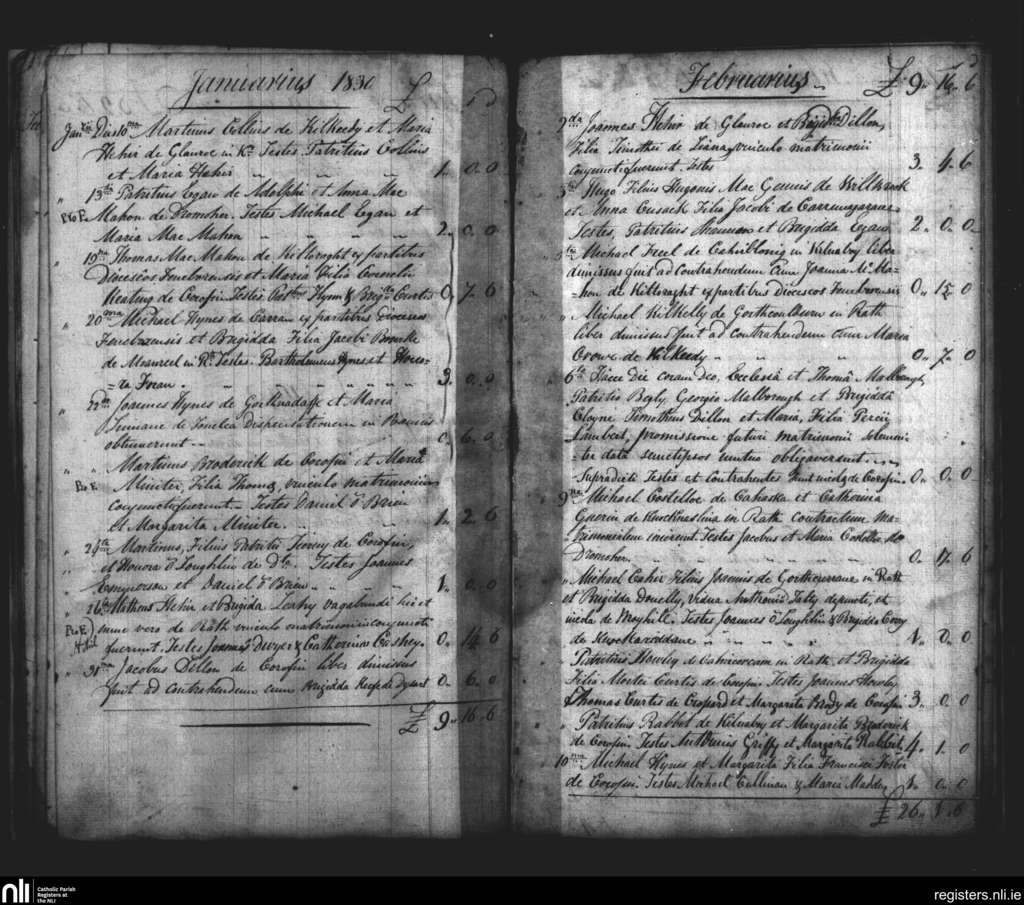 Januarius 1830 £ s d
Jan. Die 10ma Martinus Collins de Kilkeedy et Maria
Hehir de Glauroe in K. Testes Patritius Collins
et Maria Hehir 1. 0. 0
13 Patritius Egan de Adelphi et Anna Mac
Pro E. Mahon de Dromoher. Testes Michael Egan et
Maria Mac Mahon 2. 0. 0
19 Thomas Mac Mahon de Kiltoraght ex partibus
Dioceseos Feneborensis et Maria Filia Cornelii
Keating de Corofin Testes Flynn & Curtis 0. 7. 6
20ma Michael Hynes de Carran ex partibus Dioceseos
Feneborensis et Brigidda Filia Jacobi Bourke
de in R. Testes Bartholomeus Hynes et
Foran 3. 0. 0
22 Joannes Hynes de et Maria
de Dispensationem in Bannis
obtinuerunt 0. 6. 0
Martinus Broderick de Corofin et Maria
Pro E. Minter, Filia Thomæ, vinculo matrimonii
conjuncti fuerunt. Testes Daniel O Brien
et Margarita Minter 1. 2. 6
Martinus, Filius Patritii de Corofin,
et Honora O Loughlin de Do. Testes Joannes
et Daniel O Brien 1. 0. 0
26 Hehir et Brigida Leahy vagabundi hic et
Pro E. nunc vero de Rath vinculo matrimonii conjuncti
fuerunt. Testes Joannes Dwyer & Catherina Caskey. 0. 14. 6
31 Jacobus Dillon de Corofin liber dimissus
fuit ad contrahendum cum Brigidda Keefe de Dysert 0. 6. 0
£ 9. 16. 6
Februarius £ 9. 16. 6
2da Joannes Hehir de Glauroe et Brigida Dillon,
Filia Timothei de Liana, vinculo matrimonii
conjuncti fuerunt. Testes 3. 4. 6
Hugo Filius Hugonis Mac de
et Anna Cusack Filia Jacobi de
Testes, Patritius Shannon et Brigidda Egan 2. 0. 0
Michael de in Kilnaboy liber
dimissus fuit ad Contrahendum Cum Joanna Mc Ma-
-hon de Kiltoraght ex partibus Dioceseos Feneborensis 0. 15. 0
Michael Kilkelly de in Rath
liber dimissus fuit ad contrahendum cum Maria
Crowe de Kilkeedy 0. 7. 0
6ta Hacce die coram Deo, Ecclesiâ et Thomâ Malborough,
Patritio Begly, Georgio Malborough et Brigiddâ
Cloyne Timotheus Dillon et Maria, Filia
Lambert, promissione futuri matrimonii solemni-
-ter datâ semetipsos mutuo obligaverunt.
Supradicti Testes et Contrahentes sunt incolæ de Corofin. 0. 0. 0
9na Michael Costelloe de Cahaska et Catherina
Guerin de Knocknaslina in Rath contractum Ma-
trimonialem inierunt. Testes Jacobus et Maria Costelloe de
Dromoher 0. 17. 6
Michael Caher Filius Joannis de in Rath
et Brigidda Donelly, Vidua Anthonii Fahy defuncti, et
incola de Moyhill. Testes Joannes O Loughlin & Brigidda
de 1. 0. 0
Patritius Hawley de in Rath, et Brigidda
Filia Curtis de Corofin. Testes Joannes
Thomas Curtis de et Margarita Brody de Corofin 3. 0. 0
Patritius Rabbet de Kilnaboy et Margarita Broderick
de Corofin. Testes Anthonius Griffy et Margarita Rabbet 4. 1. 0
10 Michael Hynes et Margarita Filia Francisci Foster
de Corofin. Testes Michael Cullinan & Maria Madden 1. 0. 0
£ 26. 1. 6
nli
Catholic Parish
Registers at
the NLI
registers.nli.ie